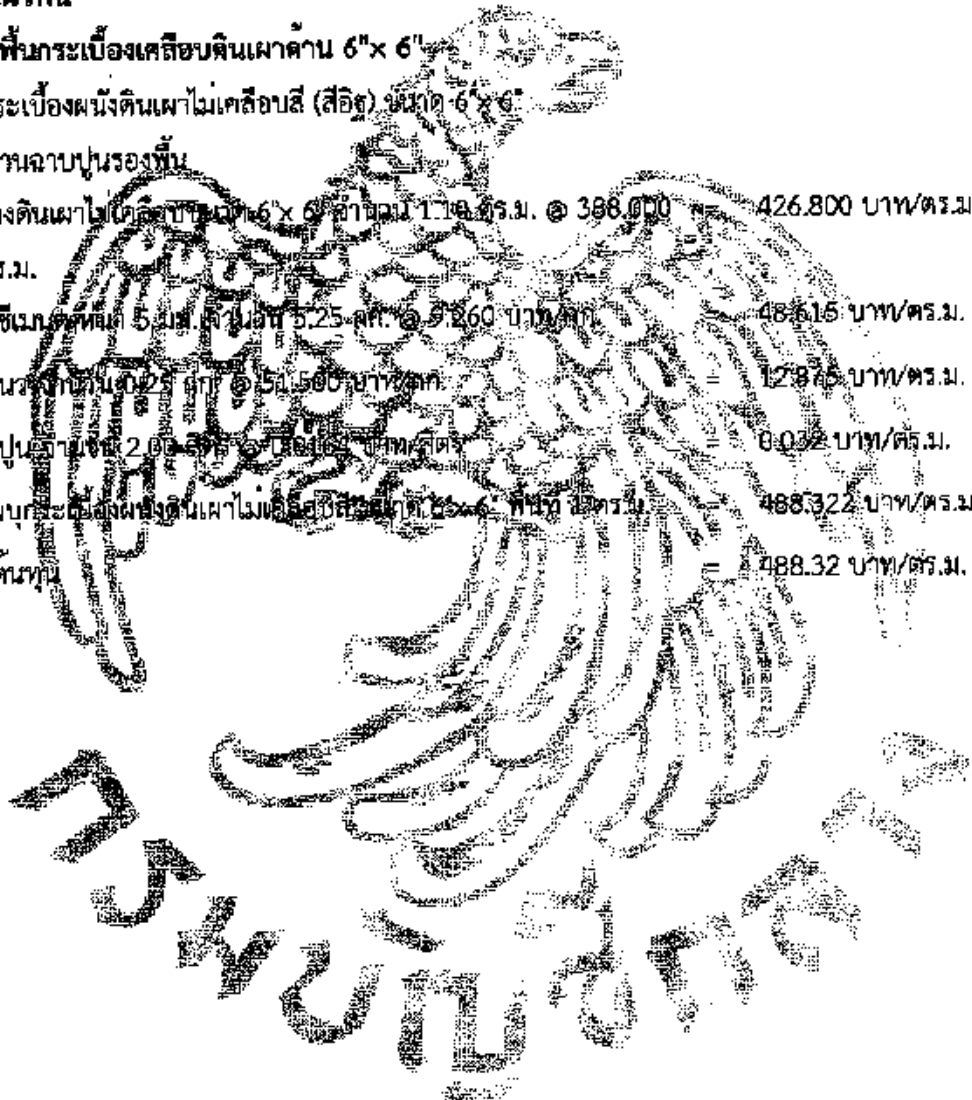 พื้นกระเบื้องเคลือบดินเผาด้าน 6"x 6"
ระเบื้องผนังดินเผาไม่เคลือบสี (สีอิฐ) ขนาด 6"x 6"
านฉาบปูนรองพื้น
องดินเผาไม่เคลือบ ขนาด 6"x 6" จำนวน 1.10 ตร.ม. @ 388.000 = 426.800 บาท/ตร.ม
ร.ม.
ซีเมนต์หนา 5 มม. จำนวน 5.25 กก. @ 9.260 บาท/กก. = 48.615 บาท/ตร.ม.
จำนวน 0.25 กก. @ 51.500 บาท/กก. = 12.875 บาท/ตร.ม.
ปูน จำนวน 2.00 ลิตร @ 0.0161 บาท/ลิตร = 0.032 บาท/ตร.ม.
บุกระเบื้องผนังดินเผาไม่เคลือบสี ขนาด 6"x 6" พื้นที่ 1 ตร.ม. = 488.322 บาท/ตร.ม
ต้นทุน = 488.32 บาท/ตร.ม.